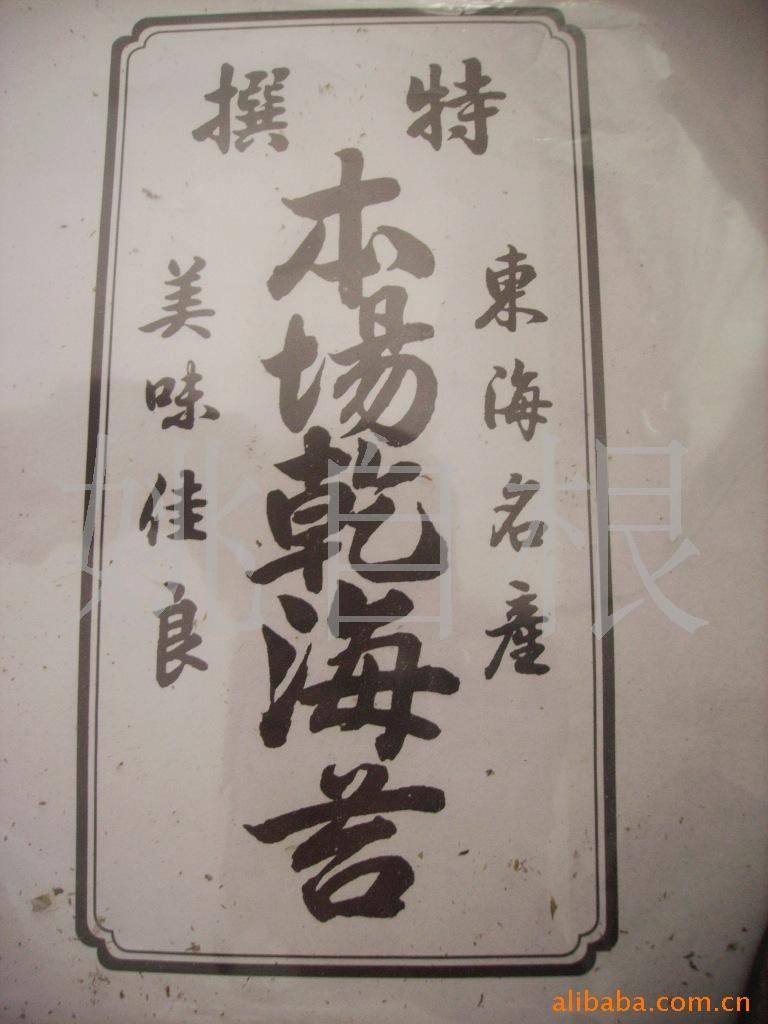 特撰
東海名産
本場乾海苔
美味佳良
姚自根
alibaba.com.cn